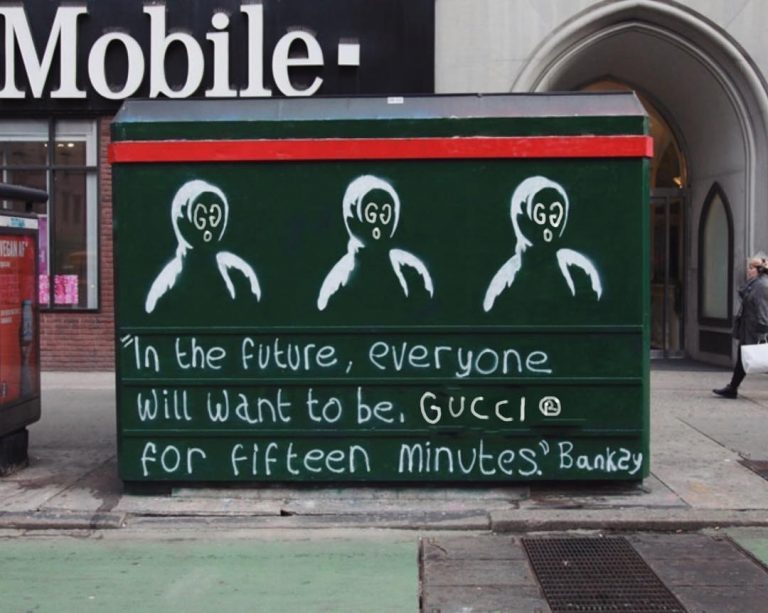 Mobile
VEGAN AF
GG
GG
GG
"In the future, everyone
will want to be. GUCCI ®
for fifteen minutes." Banksy